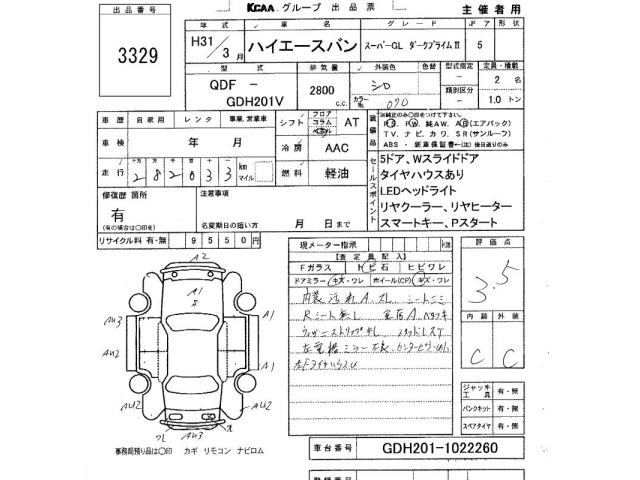 出品番号
3329
KCAA グループ 出品票
主催者用
年式 車名 グレード ドア 形状
H31/3月 ハイエースバン スーパーGL ダークプライムⅡ 5
型式 排気量 外装色 色替 型式指定 定員・積載
QDF - 2800 c.c. シロ - 2名
GDH201V カラーNo. 070 類別区分 - 1.0トン
車歴 自家用 レンタ 事業、営業車 シフト フロア コラム AT
車検 年 月 冷房 AAC
走行 十万 万 千 百 十 一 282033 km マイル 燃料 軽油
装備品
※純正のみ○印をつけて下さい。
PS、PW、純AW、AB(エアバック)
TV、ナビ、カワ、SR(サンルーフ)
ABS・新車保証書←(注)後日送りのみ
セールスポイント
5ドア、Wスライドドア
タイヤハウスあり
LEDヘッドライト
リヤクーラー、リヤヒーター
スマートキー、Pスタート
修復歴 箇所 注意事項
有
(有の場合は○印を) 名変期日の短い方 月 日まで
リサイクル料 有・無 9550円
現メーター指示 km
【査定員記入】
Fガラス トビ石 ヒビワレ
ドアミラー キズ・ワレ ホイール(CP) キズ・ワレ
内装汚れA.スレ シートニミ
Rシート無し
評価点
3.5
内装 外装
C C
A2
A1
S
AU3 A1
AU2 A1
AU2 AU2
AU3
ジャッキ工具 有・無
パンクキット 有・無
スペアタイヤ 有・無
事務局預り品は○印 カギ リモコン ナビロム
車台番号 GDH201-1022260
登録番号